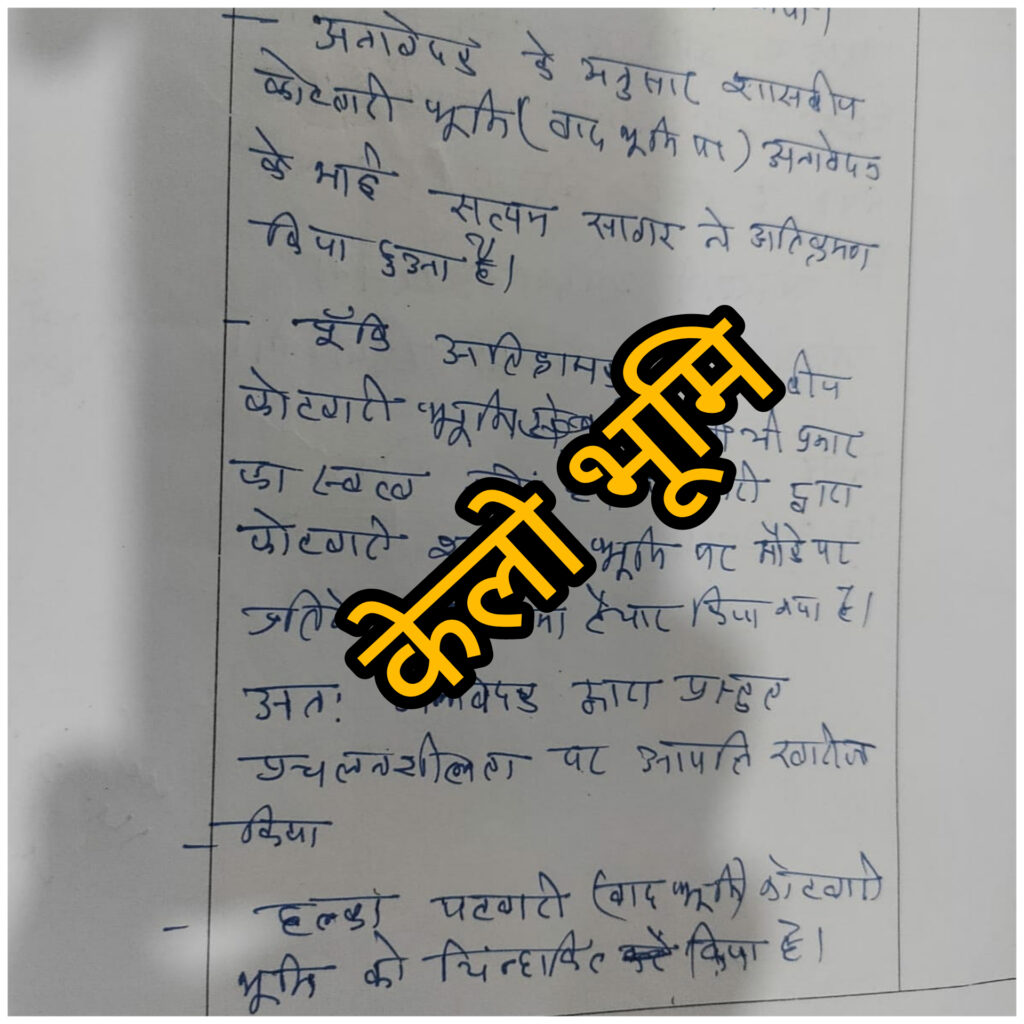 - अनावेदक के अनुसार शासकीय
कोटवारी भूमि (वाद भूमि पर) अनावेदक
के भाई सत्यम सागर ने अतिक्रमण
किया हुआ है।
- चूँकि
कोटवारी भूमि भी प्रकार
का स्वत्व द्वारा
कोटवारी भूमि पर मौके पर
तैयार किया गया है।
अतः प्रस्तुत
प्रचलनशीलता पर आपत्ति खारीज
- किया
- हल्का पटवारी (वाद भूमि) कोटवारी
भूमि को चिन्हाकित किया है।
केलो भूमि